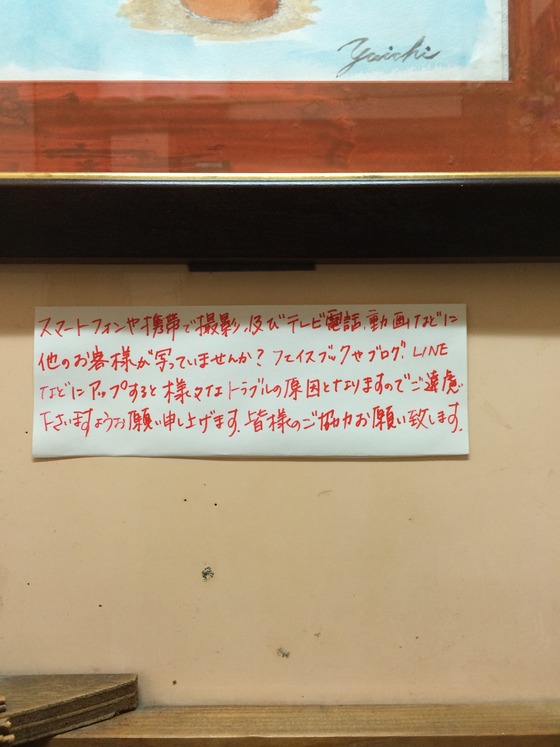 Yuichi
スマートフォンや携帯で撮影、及びテレビ電話、動画などに
他のお客様が写っていませんか？フェイスブックやブログ、LINE
などにアップすると様々なトラブルの原因となりますのでご遠慮
下さいますようお願い申し上げます。皆様のご協力お願い致します。